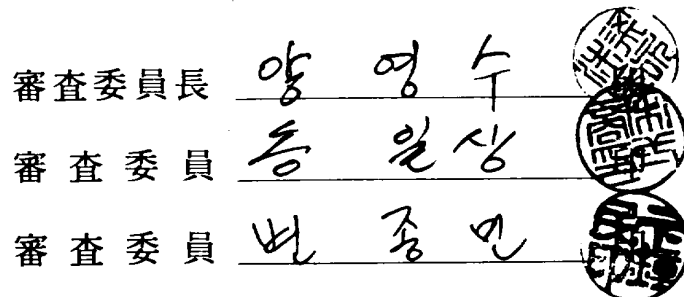 審査委員長 양영수
審査委員 송일상
審査委員 변종민